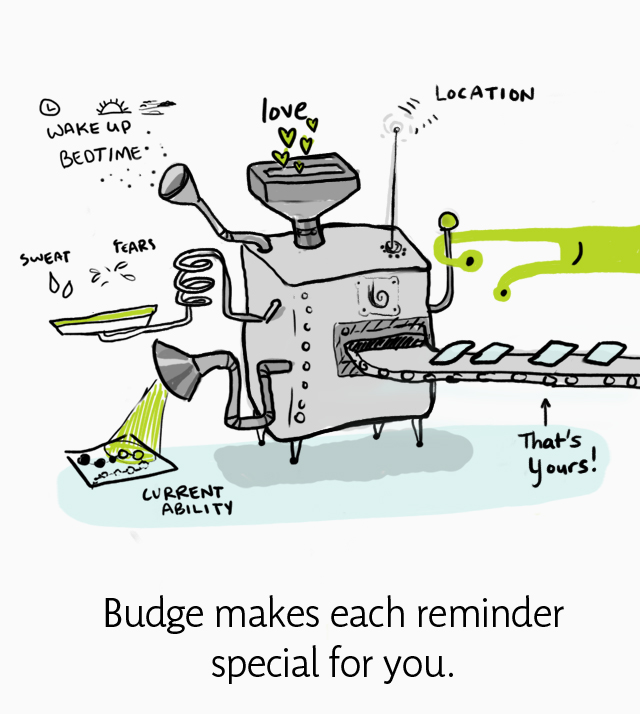 WAKE UP
BEDTIME
love
LOCATION
SWEAT
TEARS
CURRENT
ABILITY
That's
yours!
Budge makes each reminder
special for you.